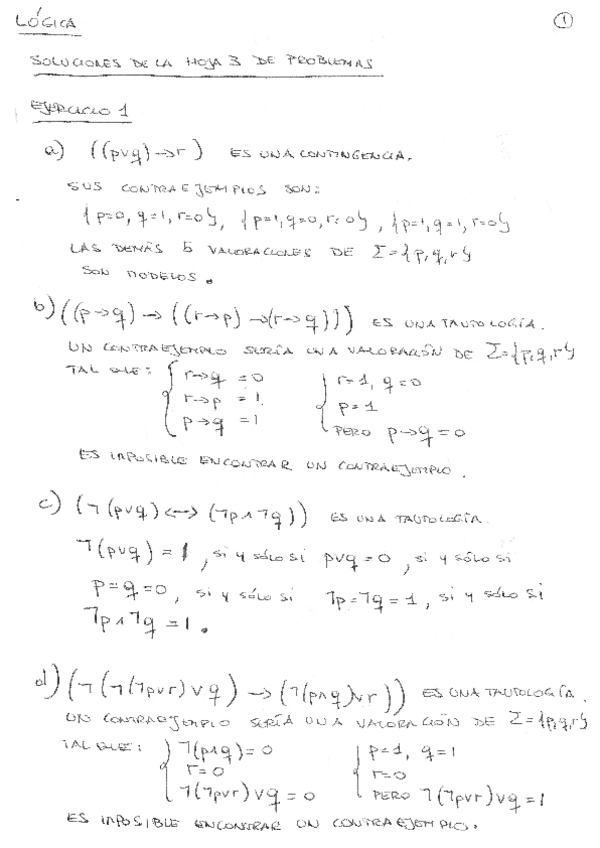 LÓGICA
1
SOLUCIONES DE LA HOJA 3 DE PROBLEMAS
EJERCICIO 1
a) ((p∨q)→r) ES UNA CONTINGENCIA.
SUS CONTRAEJEMPLOS SON:
{p=0, q=1, r=0}, {p=1, q=0, r=0}, {p=1, q=1, r=0}
LAS DEMÁS 5 VALORACIONES DE Σ={p,q,r}
SON MODELOS.
b) ((p→q)→((r→p)→(r→q))) ES UNA TAUTOLOGÍA.
UN CONTRAEJEMPLO SERÍA UNA VALORACIÓN DE Σ={p,q,r}
TAL QUE: { r→q = 0 { r=1, q=0
r→p = 1 p=1
p→q = 1 PERO p→q=0
ES IMPOSIBLE ENCONTRAR UN CONTRAEJEMPLO.
c) (¬(p∨q)↔(¬p∧¬q)) ES UNA TAUTOLOGÍA.
¬(p∨q)=1, si y sólo si p∨q=0, si y sólo si
p=q=0, si y sólo si ¬p=¬q=1, si y sólo si
¬p∧¬q=1.
d) (¬(¬(¬p∨r)∨q)→(¬(p∧q)∨r)) ES UNA TAUTOLOGÍA.
UN CONTRAEJEMPLO SERÍA UNA VALORACIÓN DE Σ={p,q,r}
TAL QUE: { ¬(p∧q)=0 { p=1, q=1
r=0 r=0
¬(¬p∨r)∨q=0 PERO ¬(¬p∨r)∨q=1
ES IMPOSIBLE ENCONTRAR UN CONTRAEJEMPLO.